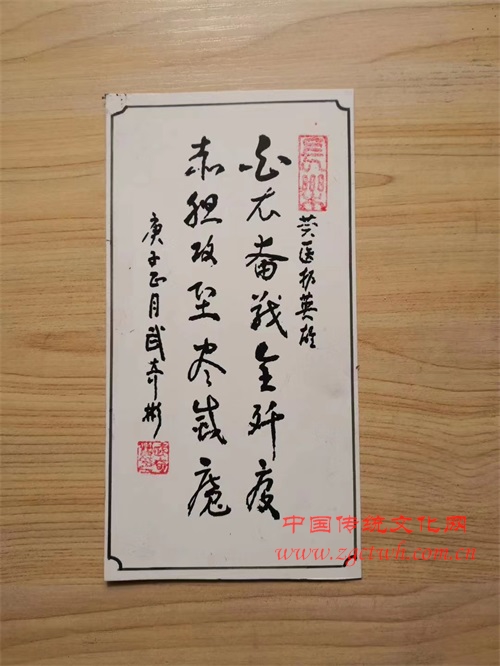 赞医护英雄
白衣奋战全歼疫
赤胆攻坚尽灭魔
庚子正月武奇彬
中国传统文化网
www.zgctwh.com.cn